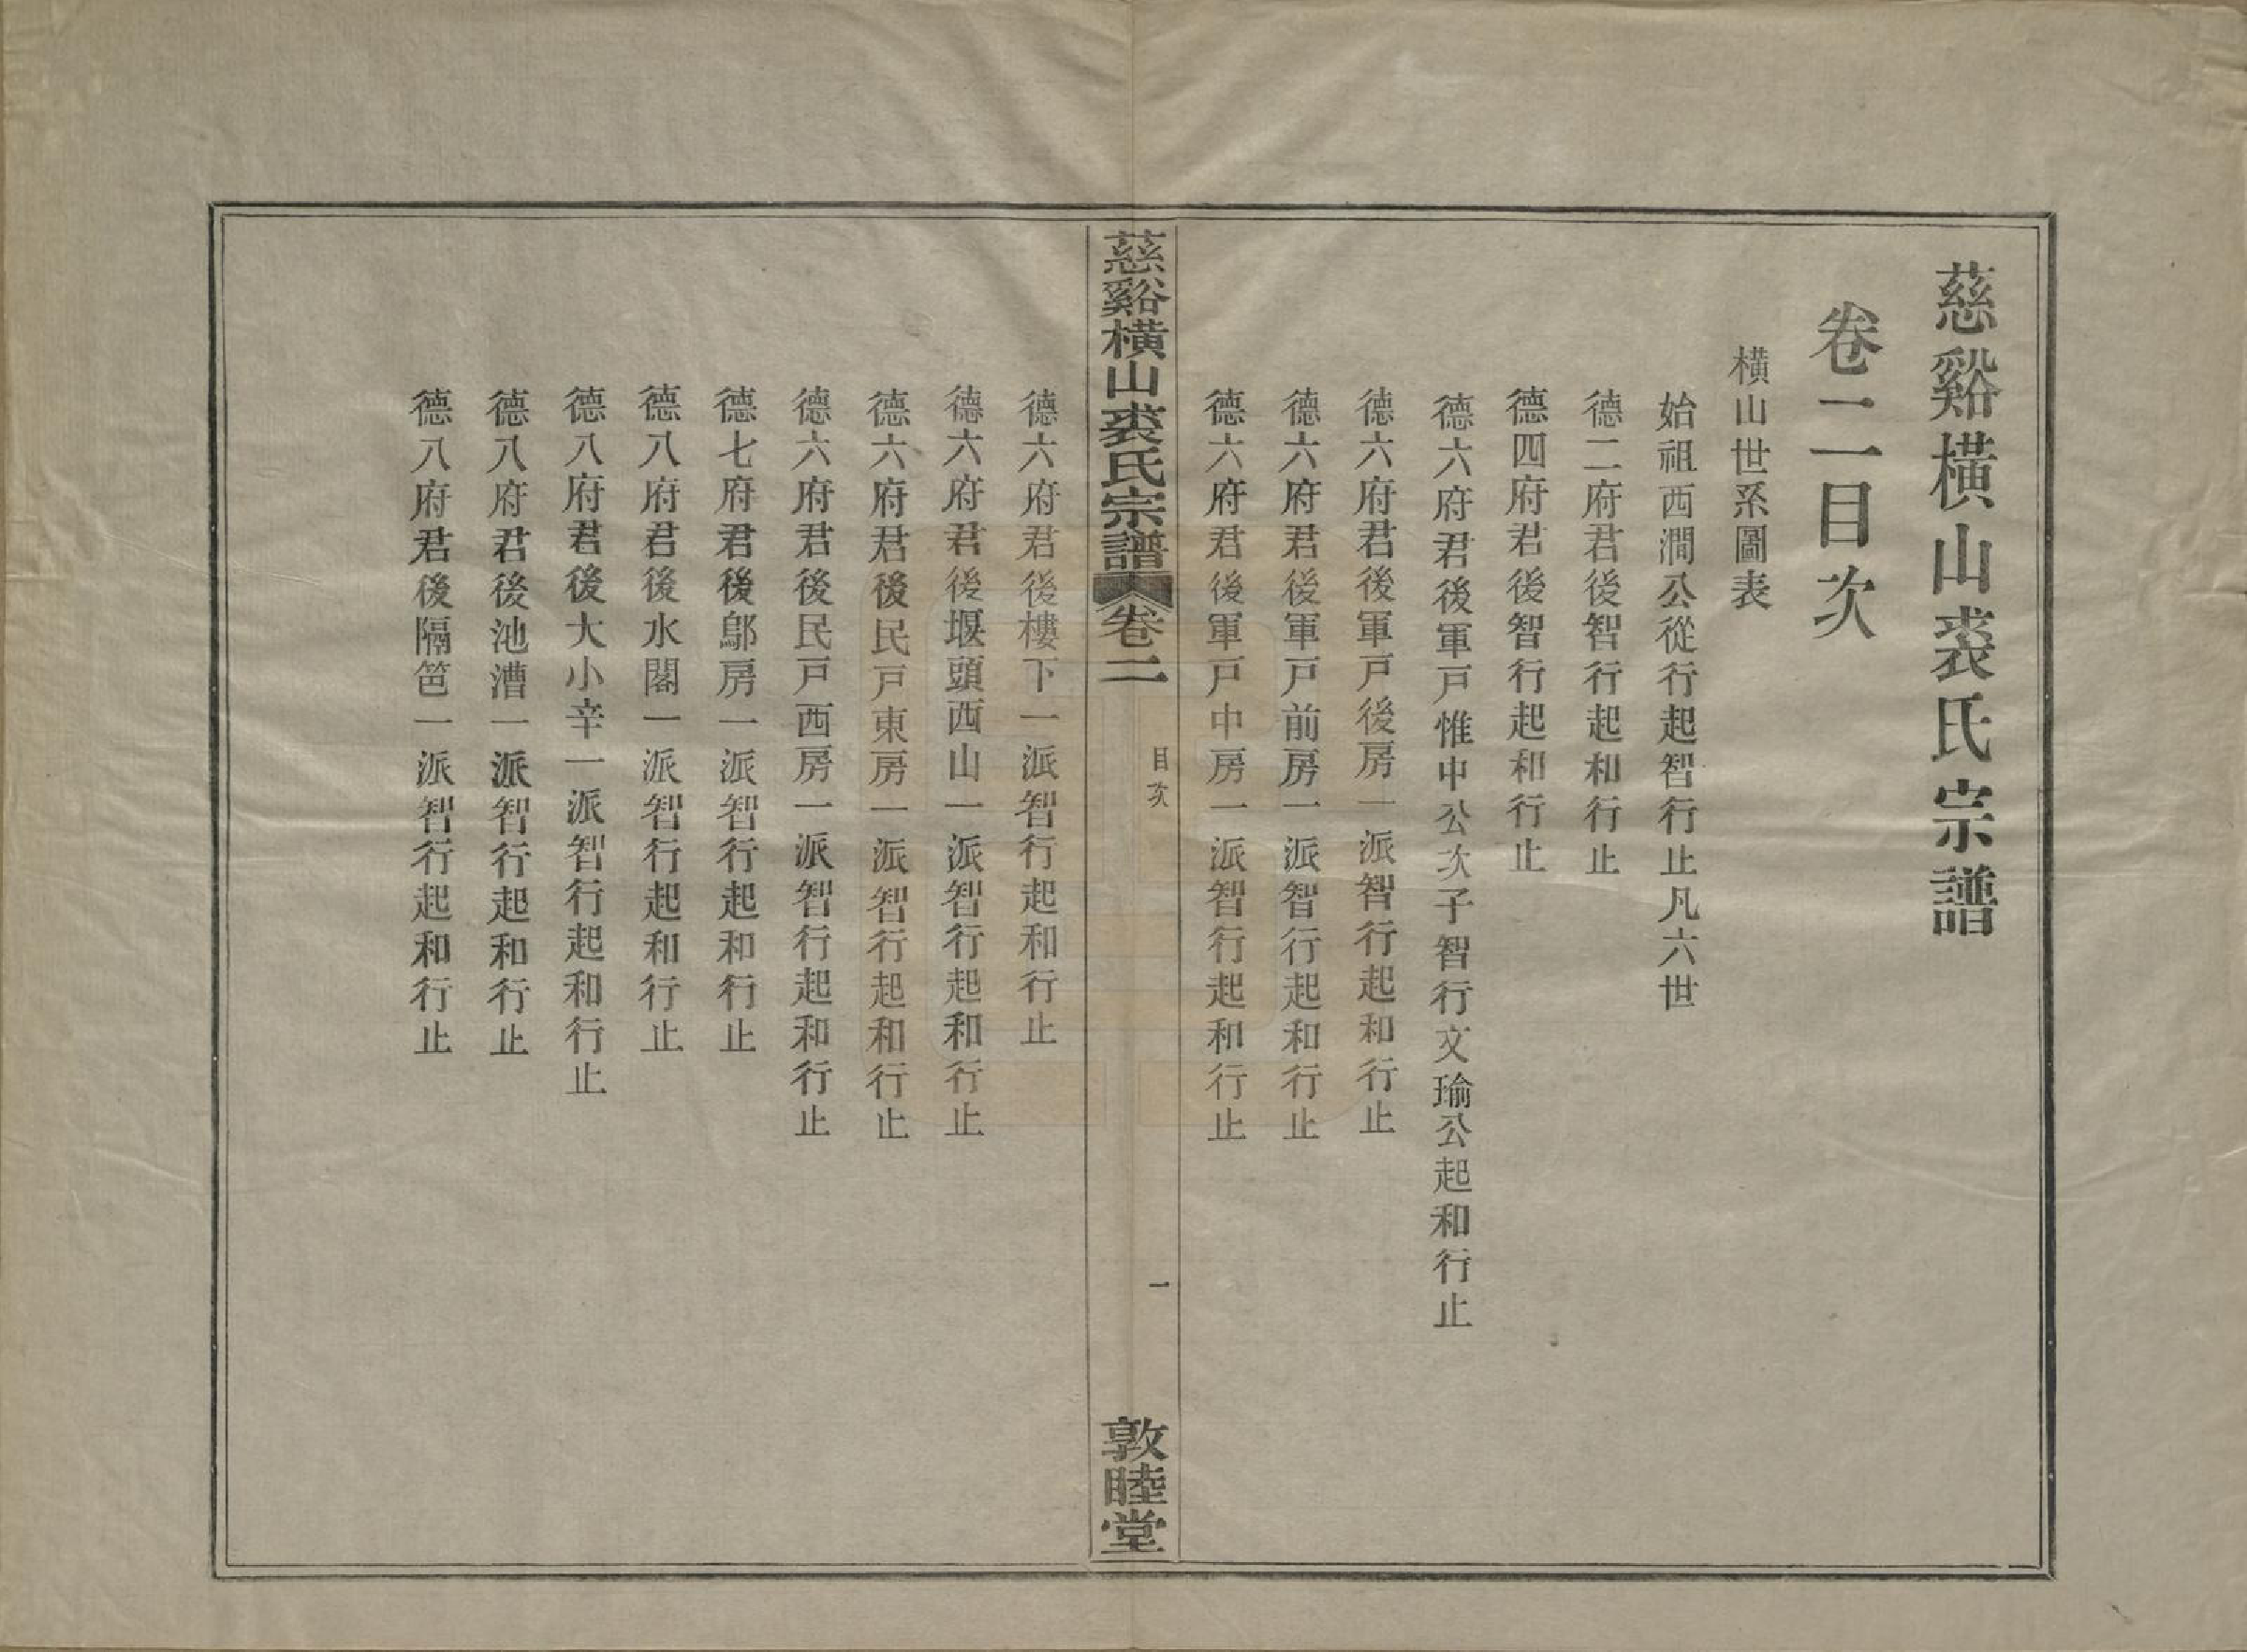 慈谿橫山裘氏宗譜
卷二目次
橫山世系圖表
始祖西澗公從行起智行止凡六世
德二府君後智行起和行止
德四府君後智行起和行止
德六府君後軍戶惟中公次子智行文瑜公起和行止
德六府君後軍戶後房一派智行起和行止
德六府君後軍戶前房一派智行起和行止
德六府君後軍戶中房一派智行起和行止
慈谿橫山裘氏宗譜 卷二 目次 一 敦睦堂
德六府君後樓下一派智行起和行止
德六府君後堰頭西山一派智行起和行止
德六府君後民戶東房一派智行起和行止
德六府君後民戶西房一派智行起和行止
德七府君後鄔房一派智行起和行止
德八府君後水閣一派智行起和行止
德八府君後大小辛一派智行起和行止
德八府君後池漕一派智行起和行止
德八府君後隔笆一派智行起和行止